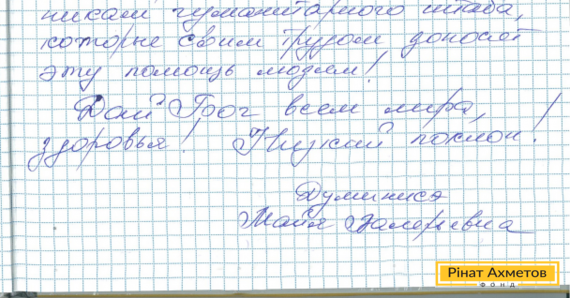 нисам гуманитарного штаба,
которые своим трудом доносят
эту помощь людям!
Дай Бог всем мира,
здоровья! Низкий поклон!
Майя Валерьевна
Рінат Ахметов
ФОНД